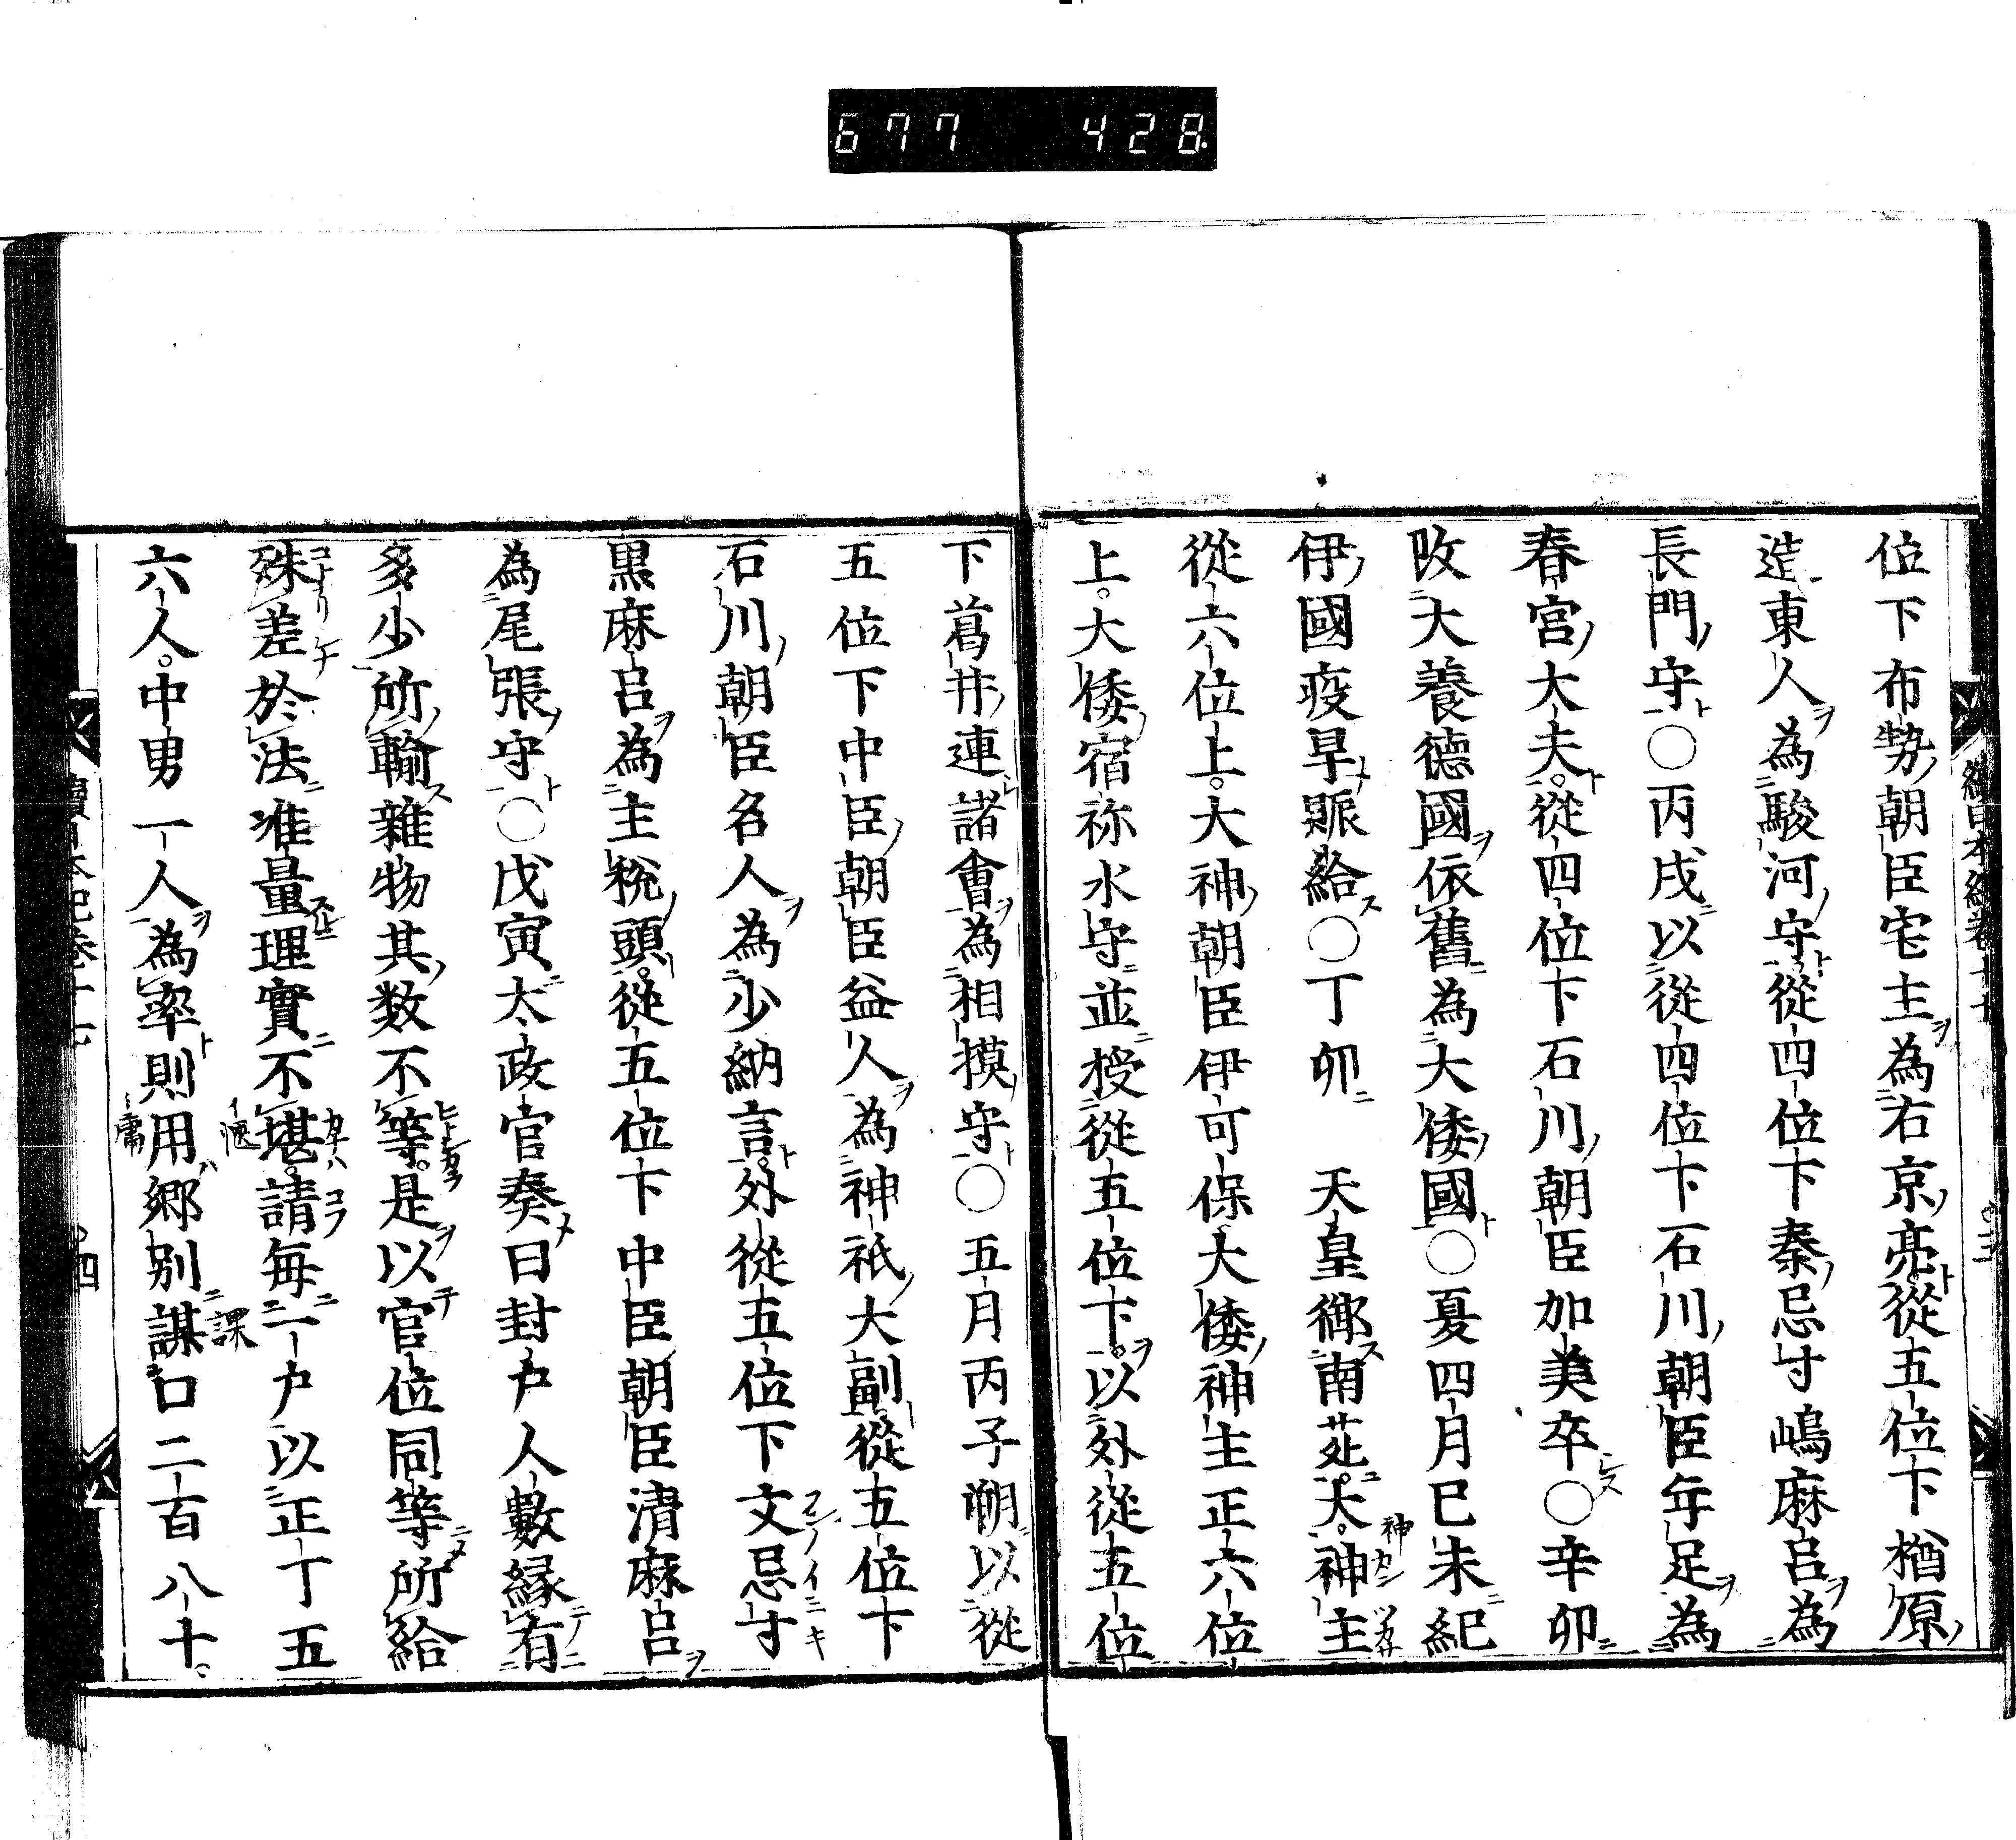 677 428
位下布勢朝臣宅主為右京亮從五位下楢原
造東人為駿河守從四位下秦忌寸嶋麻呂為
長門守○丙戌以從四位下石川朝臣年足為
春宮大夫從四位下石川朝臣加美卒○辛卯
改大養德國依舊為大倭國○夏四月已未紀
伊國疫旱賑給○丁卯 天皇御南苑大神主
從六位上大神朝臣伊可保大倭神主正六位
上大倭宿祢水守並授從五位下以外從五位
下葛井連諸會為相摸守○五月丙子朔以從
五位下中臣朝臣益人為神祇大副從五位下
石川朝臣名人為少納言外從五位下文忌寸
黒麻呂為主稅頭從五位下中臣朝臣清麻呂
為尾張守○戊寅太政官奏曰封戸人數縁有
多少所輸雜物其数不等是以官位同等所給
殊差於法准量理實不堪請每一戸以正丁五
六人中男一人為率則用郷別謀口二百八十